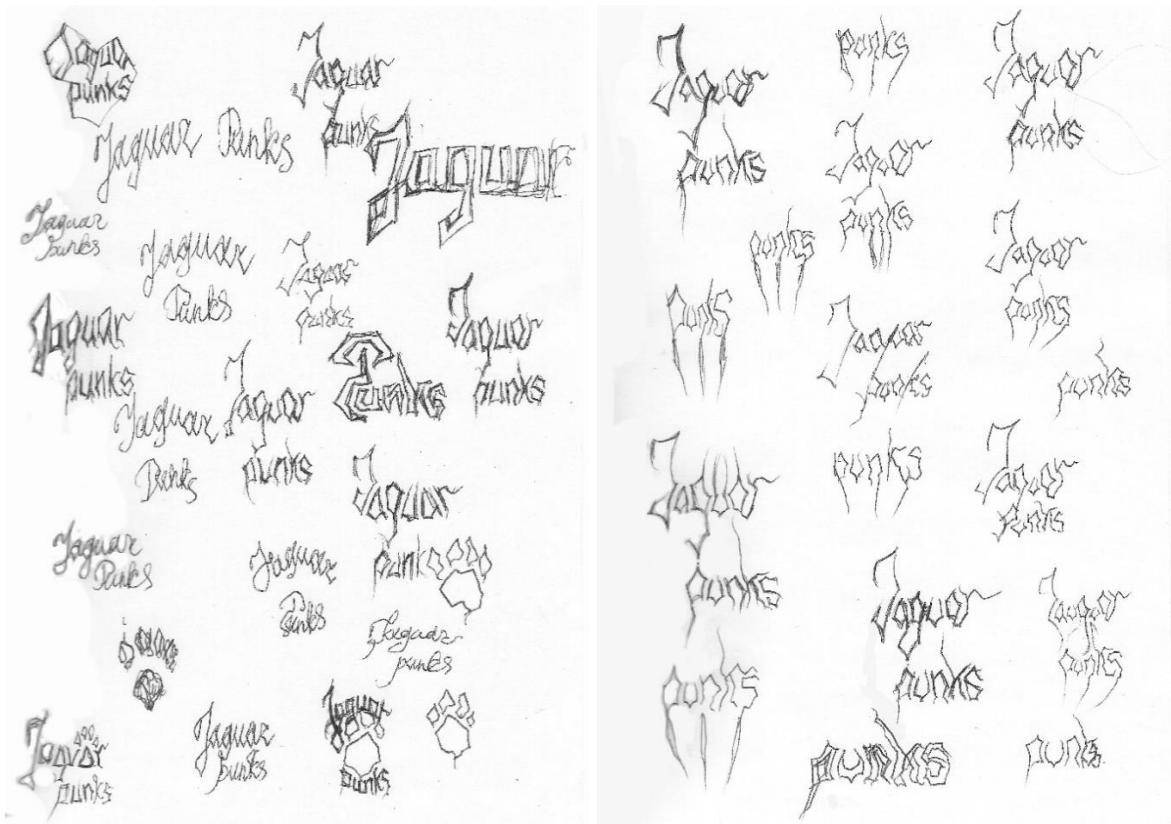 Jaguar
punks
Jaguar
punks
Jaguar Punks
Jaguar
Jaguar
punks
Jaguar
Punks
Jaguar
punks
Jaguar
punks
Jaguar
punks
Jaguar
punks
Punks
Jaguar
Punks
Jaguar
punks
Jaguar
Punks
Jaguar
Punks
Jaguar
punks
Jaguar
punks
Jaguar
punks
Jaguar
punks
Jaguar
punks
punks
Jaguar
punks
Jaguar
punks
punks
Jaguar
punks
punks
Jaguar
punks
punks
Jaguar
punks
punks
Jaguar
Punks
Jaguar
punks
Jaguar
punks
punks
punks
punks